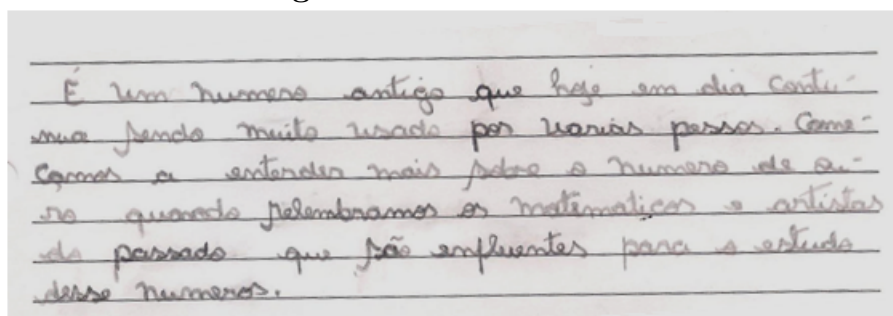 É um numero antigo que hoje em dia conti-
nua sendo muito usado por varias pessos. Come-
çamos a entender mais sobre o numero de ou-
ro quando relembramos os matematicos e artistas
do passado que são enfluentes para o estudo
desse numeros.